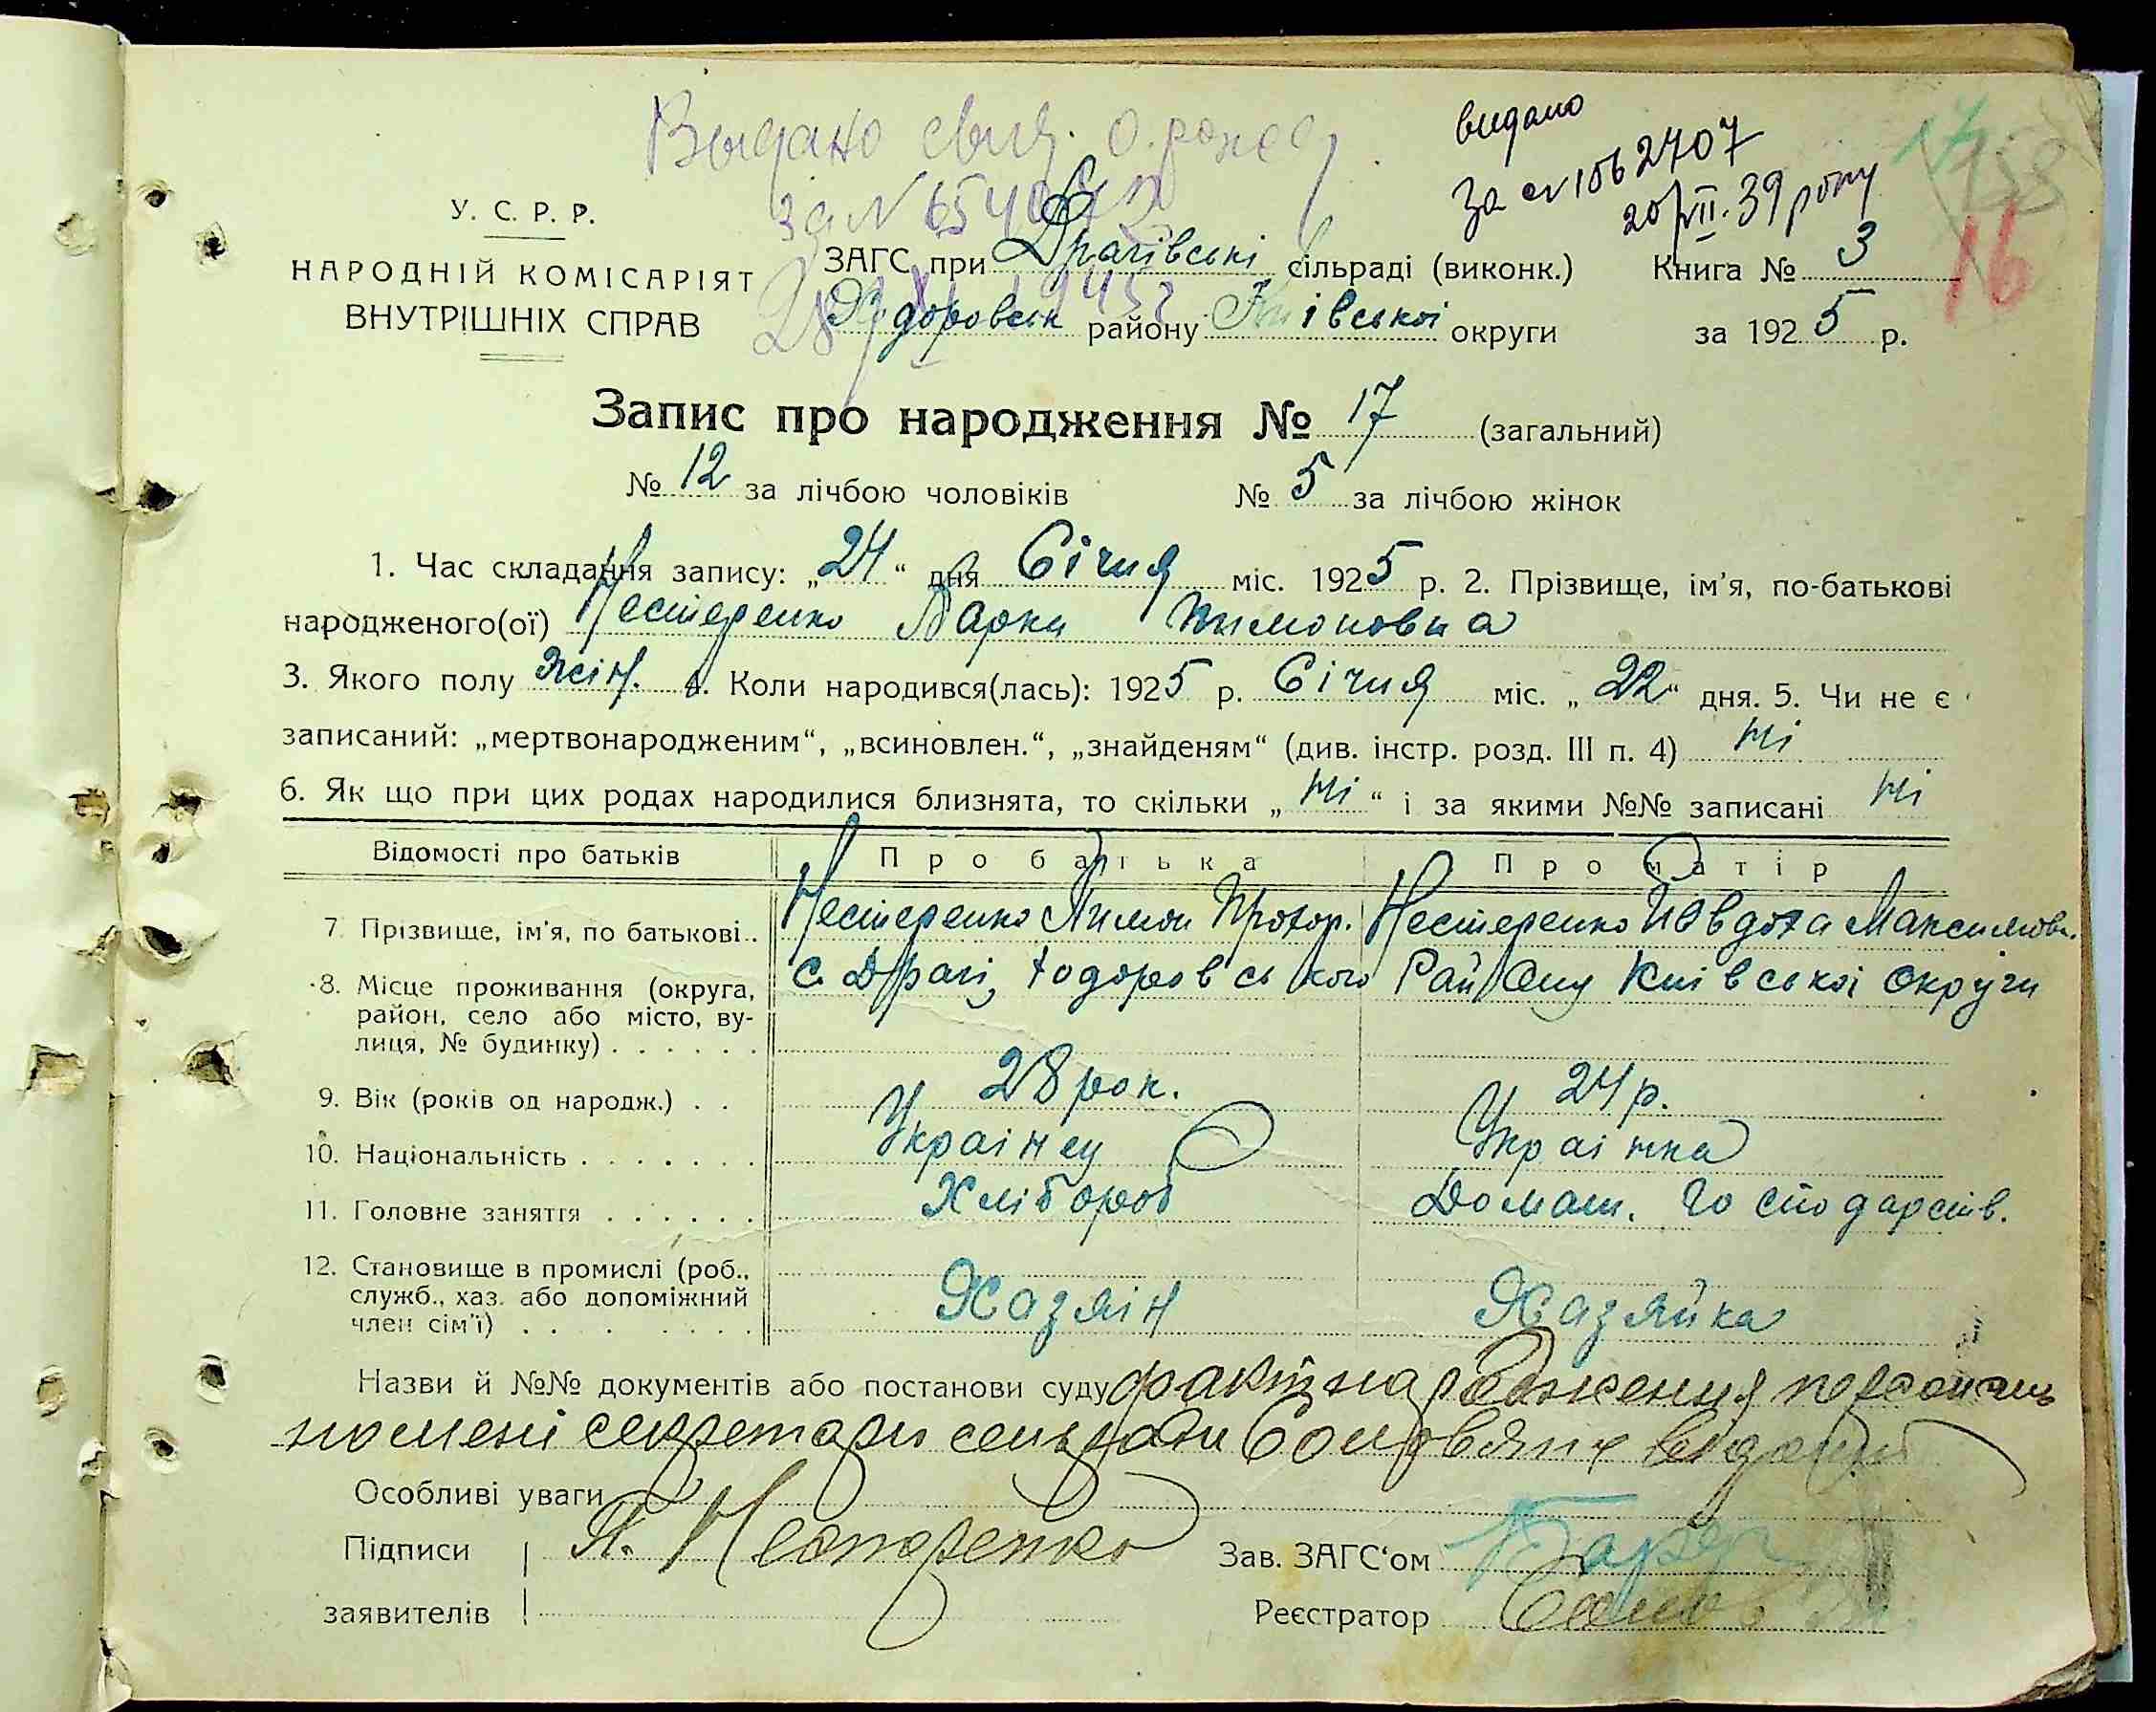 Выдано свид. о рожд.
за №
видано
За № 1562707
20/VII. 39 року
16
У. С. Р. Р.
НАРОДНІЙ КОМІСАРІЯТ
ВНУТРІШНІХ СПРАВ
ЗАГС при Драгівські сільраді (виконк.) Книга № 3
Ходоровськ району Київської округи за 1925 р.
Запис про народження № 17 (загальний)
№ 12 за лічбою чоловіків № 5 за лічбою жінок
1. Час складання запису: „24“ дня Січня міс. 1925 р. 2. Прізвище, ім'я, по-батькові
народженого(ої) Нестеренко Варка Тимоповна
3. Якого полу жін. 4. Коли народився(лась): 1925 р. Січня міс. „22“ дня. 5. Чи не є
записаний: „мертвонародженим“, „всиновлен.“, „знайденям“ (див. інстр. розд. III п. 4) ні
6. Як що при цих родах народилися близнята, то скільки „ні“ і за якими №№ записані ні
Відомості про батьків Про батька Про матір
7. Прізвище, ім'я, по батькові.. Нестеренко Пимон Прохор. Нестеренко Йовдоха Максимовн.
8. Місце проживання (округа, с. Драгі, Ходоровського Району Київської округи
район, село або місто, ву-
лиця, № будинку) . . . . . .
9. Вік (років од народж.) . . 28 рок. 24 р.
10. Національність . . . . . . . Українец Українка
11. Головне заняття . . . . . . Хлібороб Домаш. господарств.
12. Становище в промислі (роб.,
служб., хаз. або допоміжний Хазяін Хазяйка
член сім'ї) . . . . . . . .
Назви й №№ документів або постанови суду факт народження
секретарю сельради
Особливі уваги
Підписи П. Нестеренко Зав. ЗАГС'ом
заявителів Реєстратор